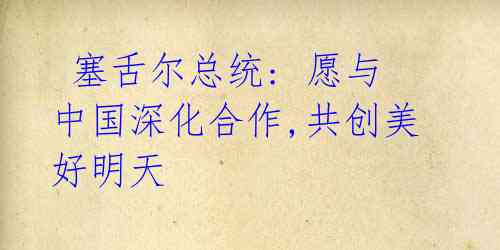 塞舌尔总统: 愿与
中国深化合作,共创美
好明天